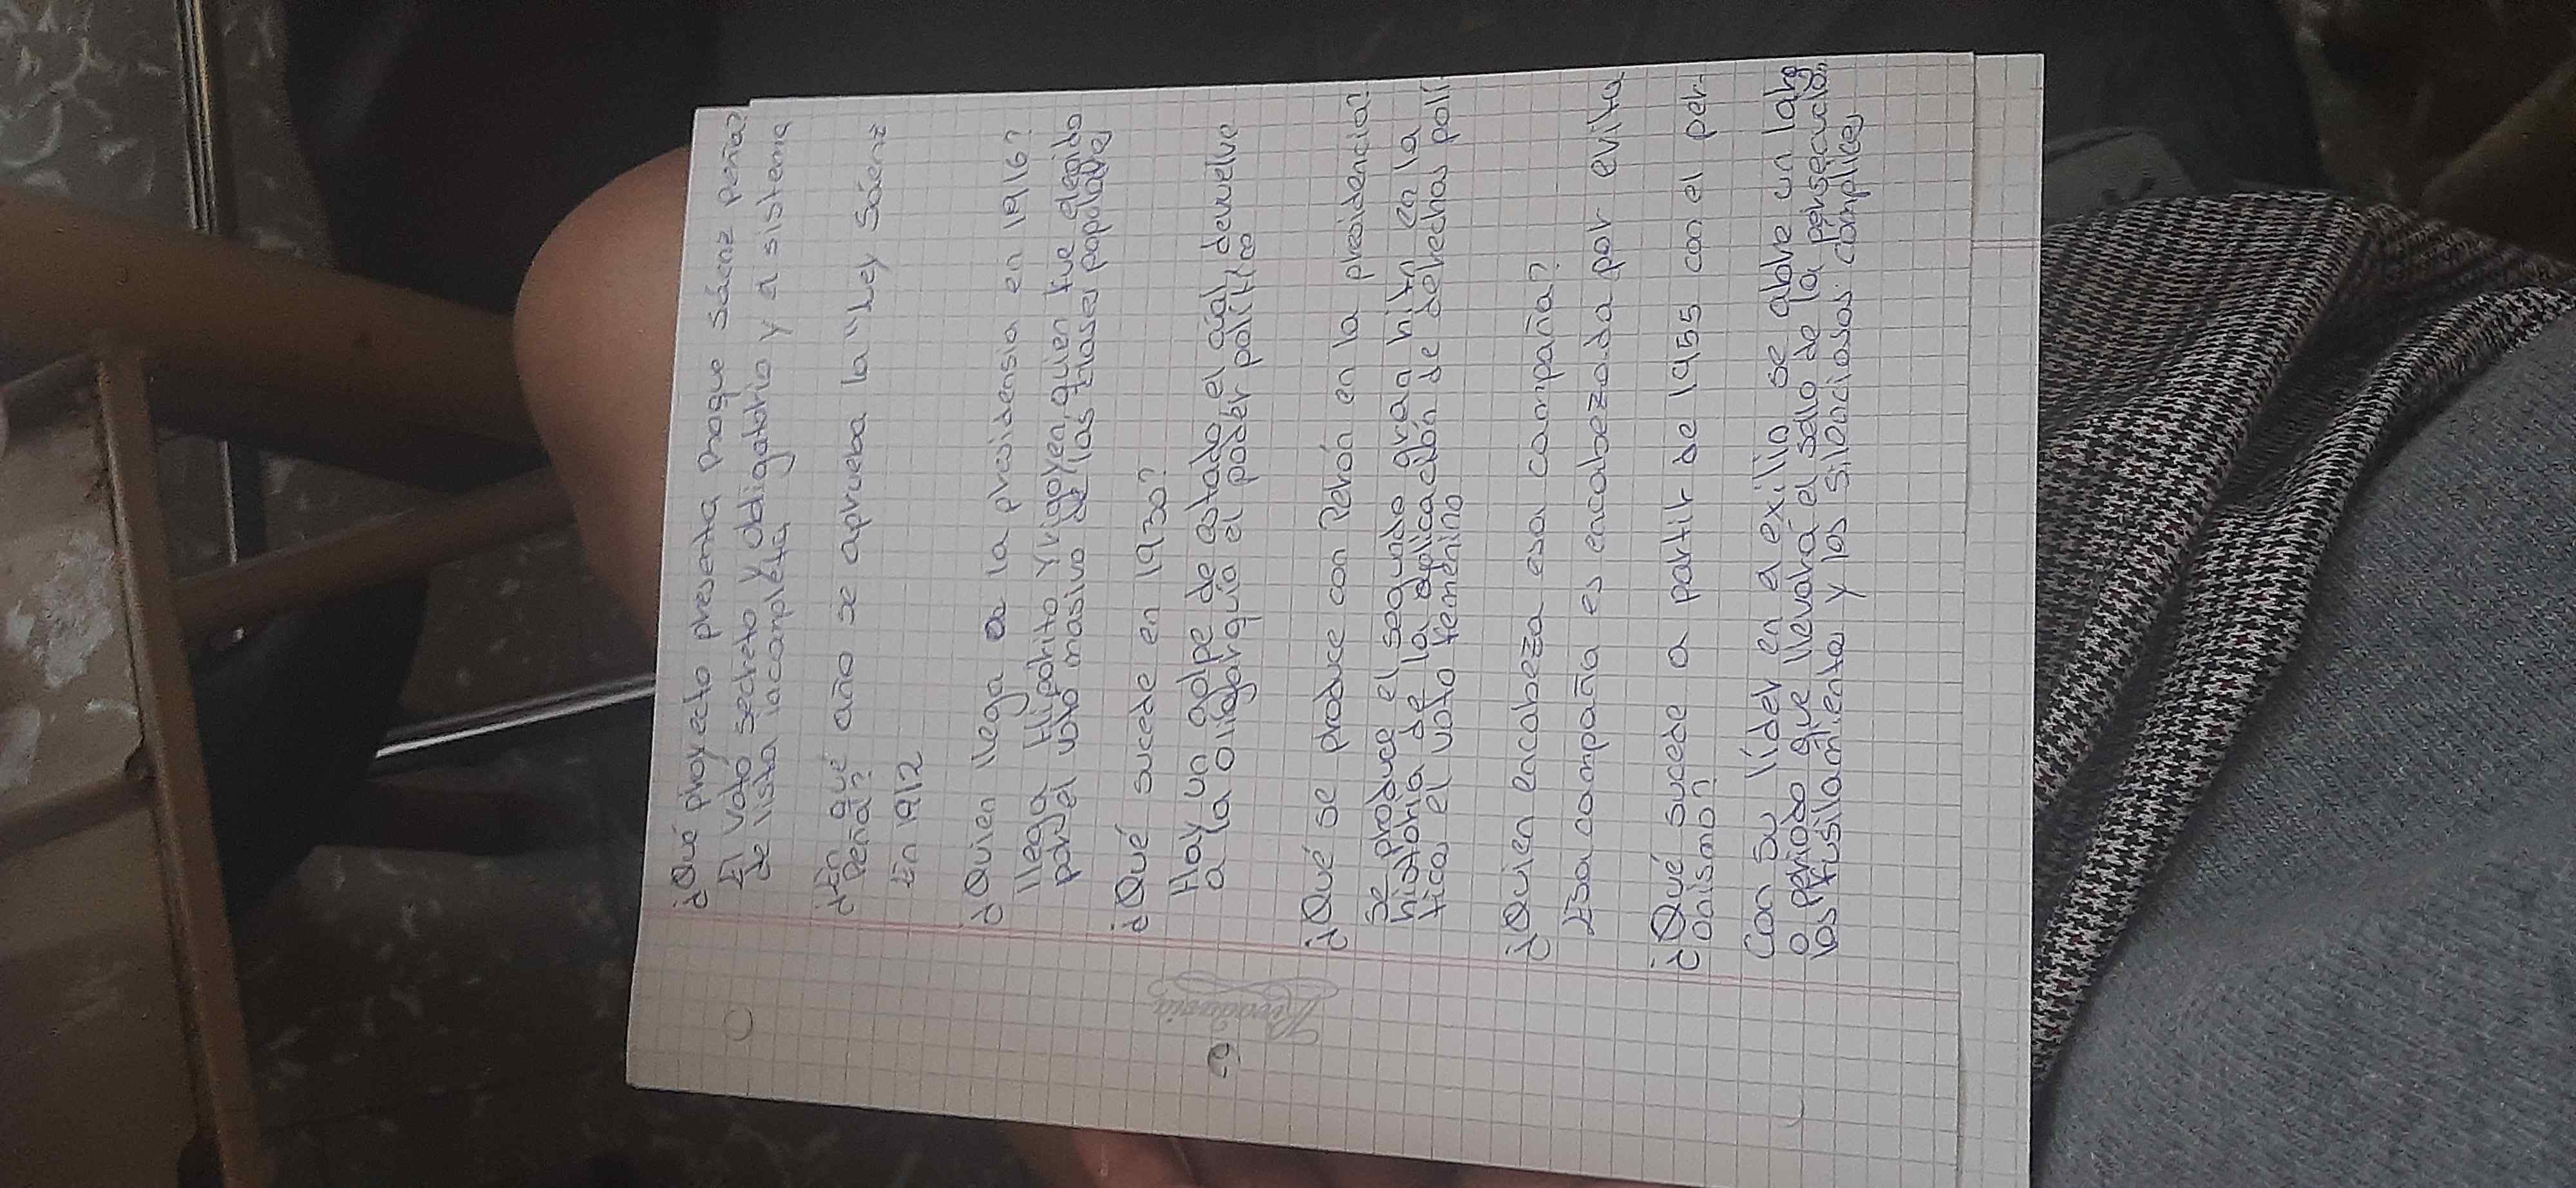 ¿Qué proyecto presenta Roque sáenz peña?
El voto secreto y obligatorio y el sistema
de lista incompleta
¿En qué año se aprueba la "Ley Sáenz
Peña"?
En 1912
¿Quien llega a la presidensia en 1916?
llega Hipolito Yrigoyen quien fue elegido
por el voto masivo de las clases populares
¿Qué sucede en 1930?
Hay un golpe de estado el cual devuelve
a la oligarquía el poder politico
¿Qué se produce con Perón en la presidencia?
Se produce el segundo gran hito en la
historia de la aplicación de derechos polí-
ticos el voto femenino
¿Quien encabeza esa campaña?
Esa campaña es encabezada por evita
¿Qué sucede a partir de 1955 con el per-
onismo?
Con su líder en el exilio se abre un larg
o periodo que llevará el sello de la persecución
los fusilamientos y los silencios cómplices
Rivadavia